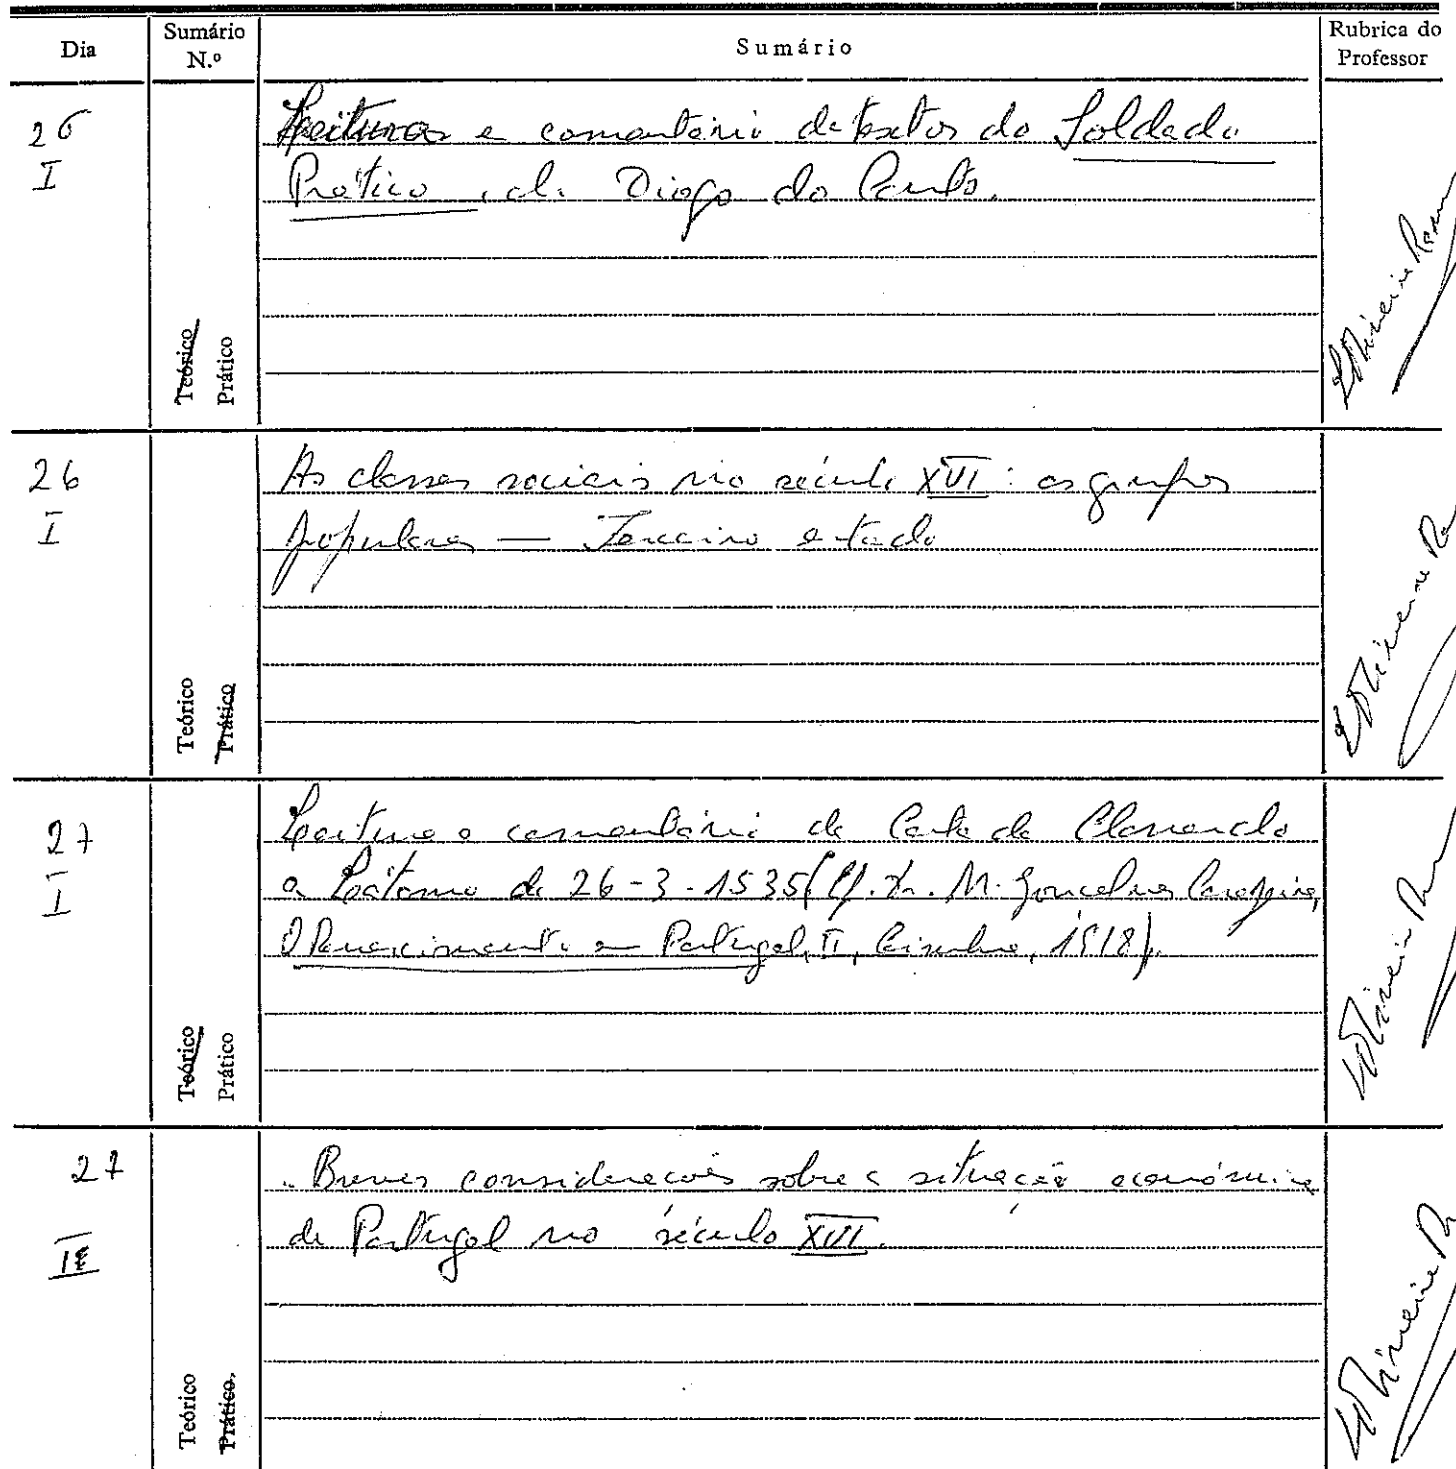 Dia
Sumário N.º
Sumário
Rubrica do Professor
26
I
Leituras e comentário de textos do Soldado
Prático, de Diogo do Couto.
Teórico
Prático
26
I
As classes sociais no século XVI: os grupos
populares — Terceiro estado
Teórico
Prático
27
I
Leitura e comentário da Carta de Clenardo
a Látomo de 26-3-1535 (Cf. M. Gonçalves Cerejeira,
O Renascimento em Portugal, II, Coimbra, 1918).
Teórico
Prático
27
Breves considerações sobre a situação económica
de Portugal no século XVI.
Teórico
Prático.